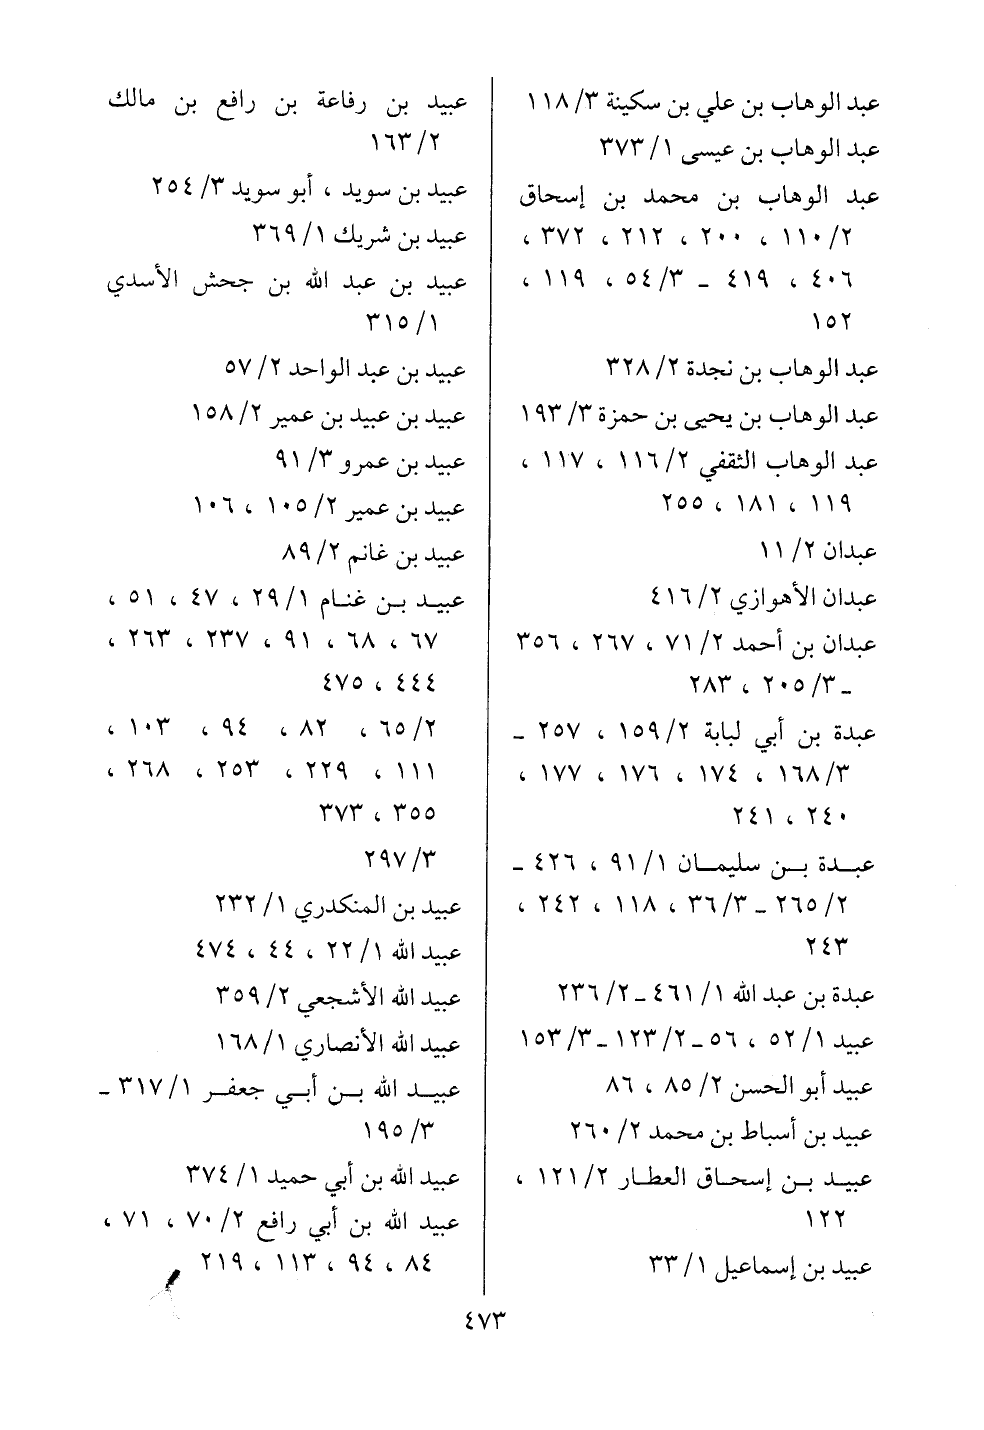 عبد الوهاب بن علي بن سكينة ٣/ ١١٨
عبد الوهاب بن عيسى ١/ ٣٧٣
عبد الوهاب بن محمد بن إسحاق
٢/ ١١٠ ، ٢٠٠ ، ٢١٢ ، ٣٧٢ ،
٤٠٦ ، ٤١٩ ـ ٣/ ٥٤ ، ١١٩ ،
١٥٢
عبد الوهاب بن نجدة ٢/ ٣٢٨
عبد الوهاب بن يحيى بن حمزة ٣/ ١٩٣
عبد الوهاب الثقفي ٢/ ١١٦ ، ١١٧ ،
١١٩ ، ١٨١ ، ٢٥٥
عبدان ٢/ ١١
عبدان الأهوازي ٢/ ٤١٦
عبدان بن أحمد ٢/ ٧١ ، ٢٦٧ ، ٣٥٦
ـ ٣/ ٢٠٥ ، ٢٨٣
عبدة بن أبي لبابة ٢/ ١٥٩ ، ٢٥٧ ـ
٣/ ١٦٨ ، ١٧٤ ، ١٧٦ ، ١٧٧ ،
٢٤٠ ، ٢٤١
عبدة بن سليمان ١/ ٩١ ، ٤٢٦ ـ
٢/ ٢٦٥ ـ ٣/ ٣٦ ، ١١٨ ، ٢٤٢ ،
٢٤٣
عبدة بن عبد الله ١/ ٤٦١ ـ ٢/ ٢٣٦
عبيد ١/ ٥٢ ، ٥٦ ـ ٢/ ١٢٣ ـ ٣/ ١٥٣
عبيد أبو الحسن ٢/ ٨٥ ، ٨٦
عبيد بن أسباط بن محمد ٢/ ٢٦٠
عبيد بن إسحاق العطار ٢/ ١٢١ ،
١٢٢
عبيد بن إسماعيل ١/ ٣٣
عبيد بن رفاعة بن رافع بن مالك
٢/ ١٦٣
عبيد بن سويد ، أبو سويد ٣/ ٢٥٤
عبيد بن شريك ١/ ٣٦٩
عبيد بن عبد الله بن جحش الأسدي
١/ ٣١٥
عبيد بن عبد الواحد ٢/ ٥٧
عبيد بن عبيد بن عمير ٢/ ١٥٨
عبيد بن عمرو ٣/ ٩١
عبيد بن عمير ٢/ ١٠٥ ، ١٠٦
عبيد بن غانم ٢/ ٨٩
عبيد بن غنام ١/ ٢٩ ، ٤٧ ، ٥١ ،
٦٧ ، ٦٨ ، ٩١ ، ٢٣٧ ، ٢٦٣ ،
٤٤٤ ، ٤٧٥
٢/ ٦٥ ، ٨٢ ، ٩٤ ، ١٠٣ ،
١١١ ، ٢٢٩ ، ٢٥٣ ، ٢٦٨ ،
٣٥٥ ، ٣٧٣
٣/ ٢٩٧
عبيد بن المنكدري ١/ ٢٣٢
عبيد الله ١/ ٢٢ ، ٤٤ ، ٤٧٤
عبيد الله الأشجعي ٢/ ٣٥٩
عبيد الله الأنصاري ١/ ١٦٨
عبيد الله بن أبي جعفر ١/ ٣١٧ ـ
٣/ ١٩٥
عبيد الله بن أبي حميد ١/ ٣٧٤
عبيد الله بن أبي رافع ٢/ ٧٠ ، ٧١ ،
٨٤ ، ٩٤ ، ١١٣ ، ٢١٩
٤٧٣